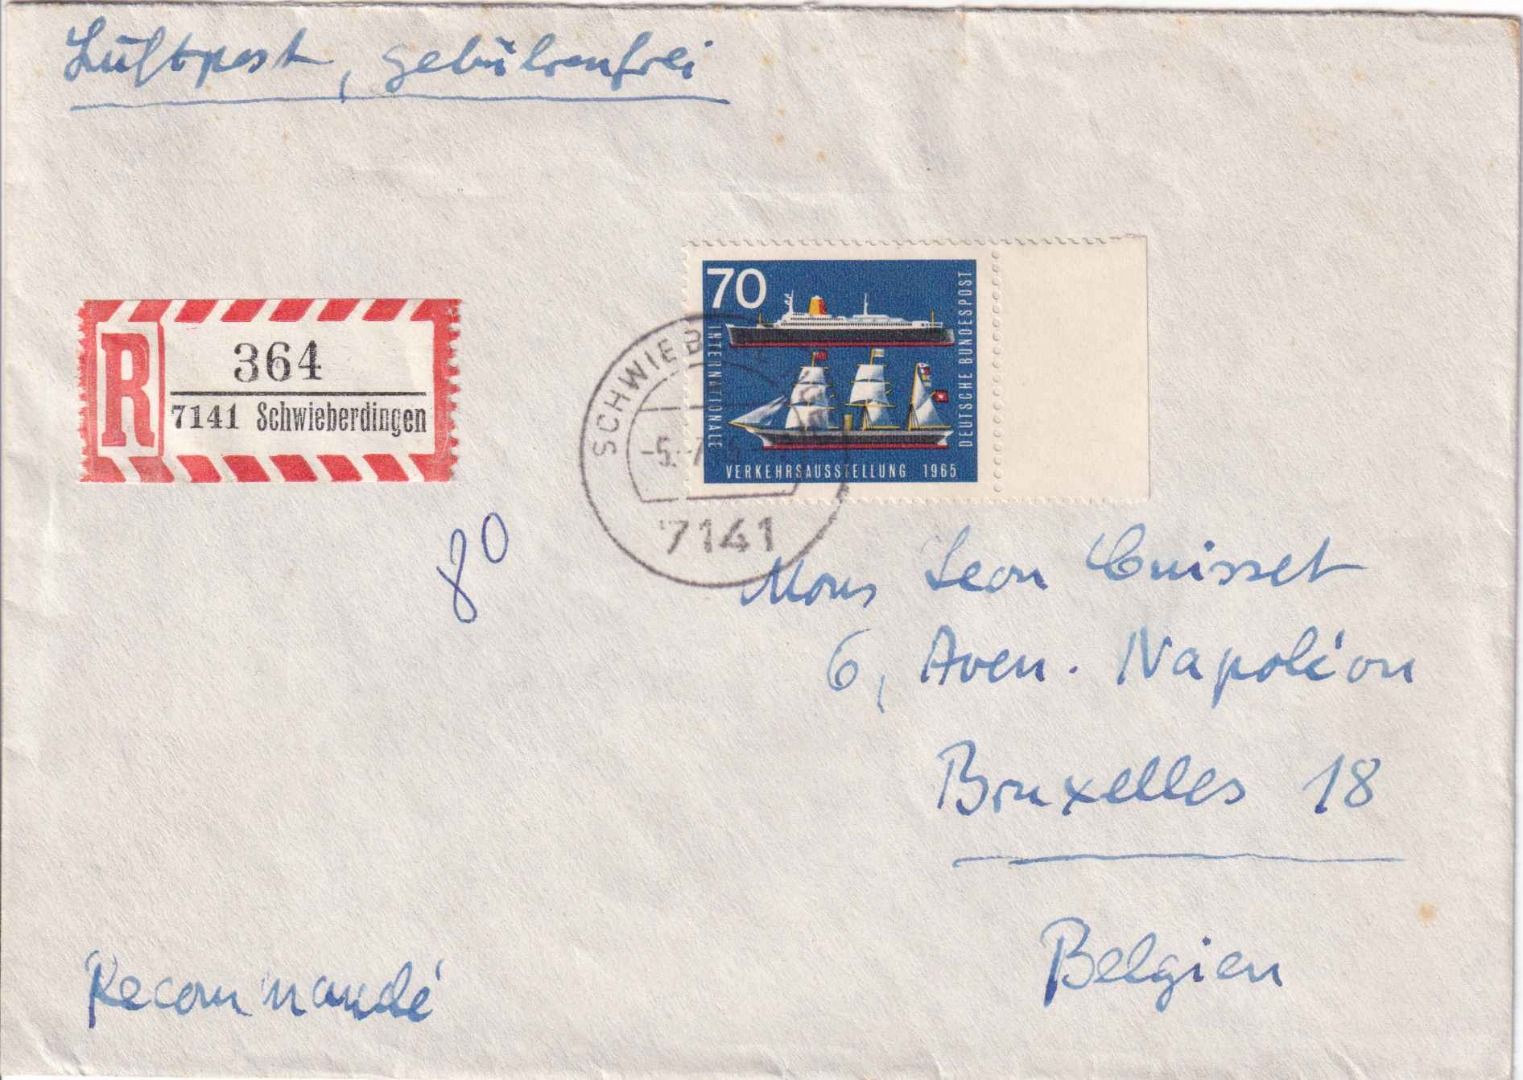 Luftpost, gebührenfrei
R
364
7141 Schwieberdingen
70
INTERNATIONALE
VERKEHRSAUSSTELLUNG 1965
DEUTSCHE BUNDESPOST
SCHWIEB
-5.-7
7141
80
Mons Leon Cuisset
6, Aven. Napoléon
Bruxelles 18
Belgien
Recommandé